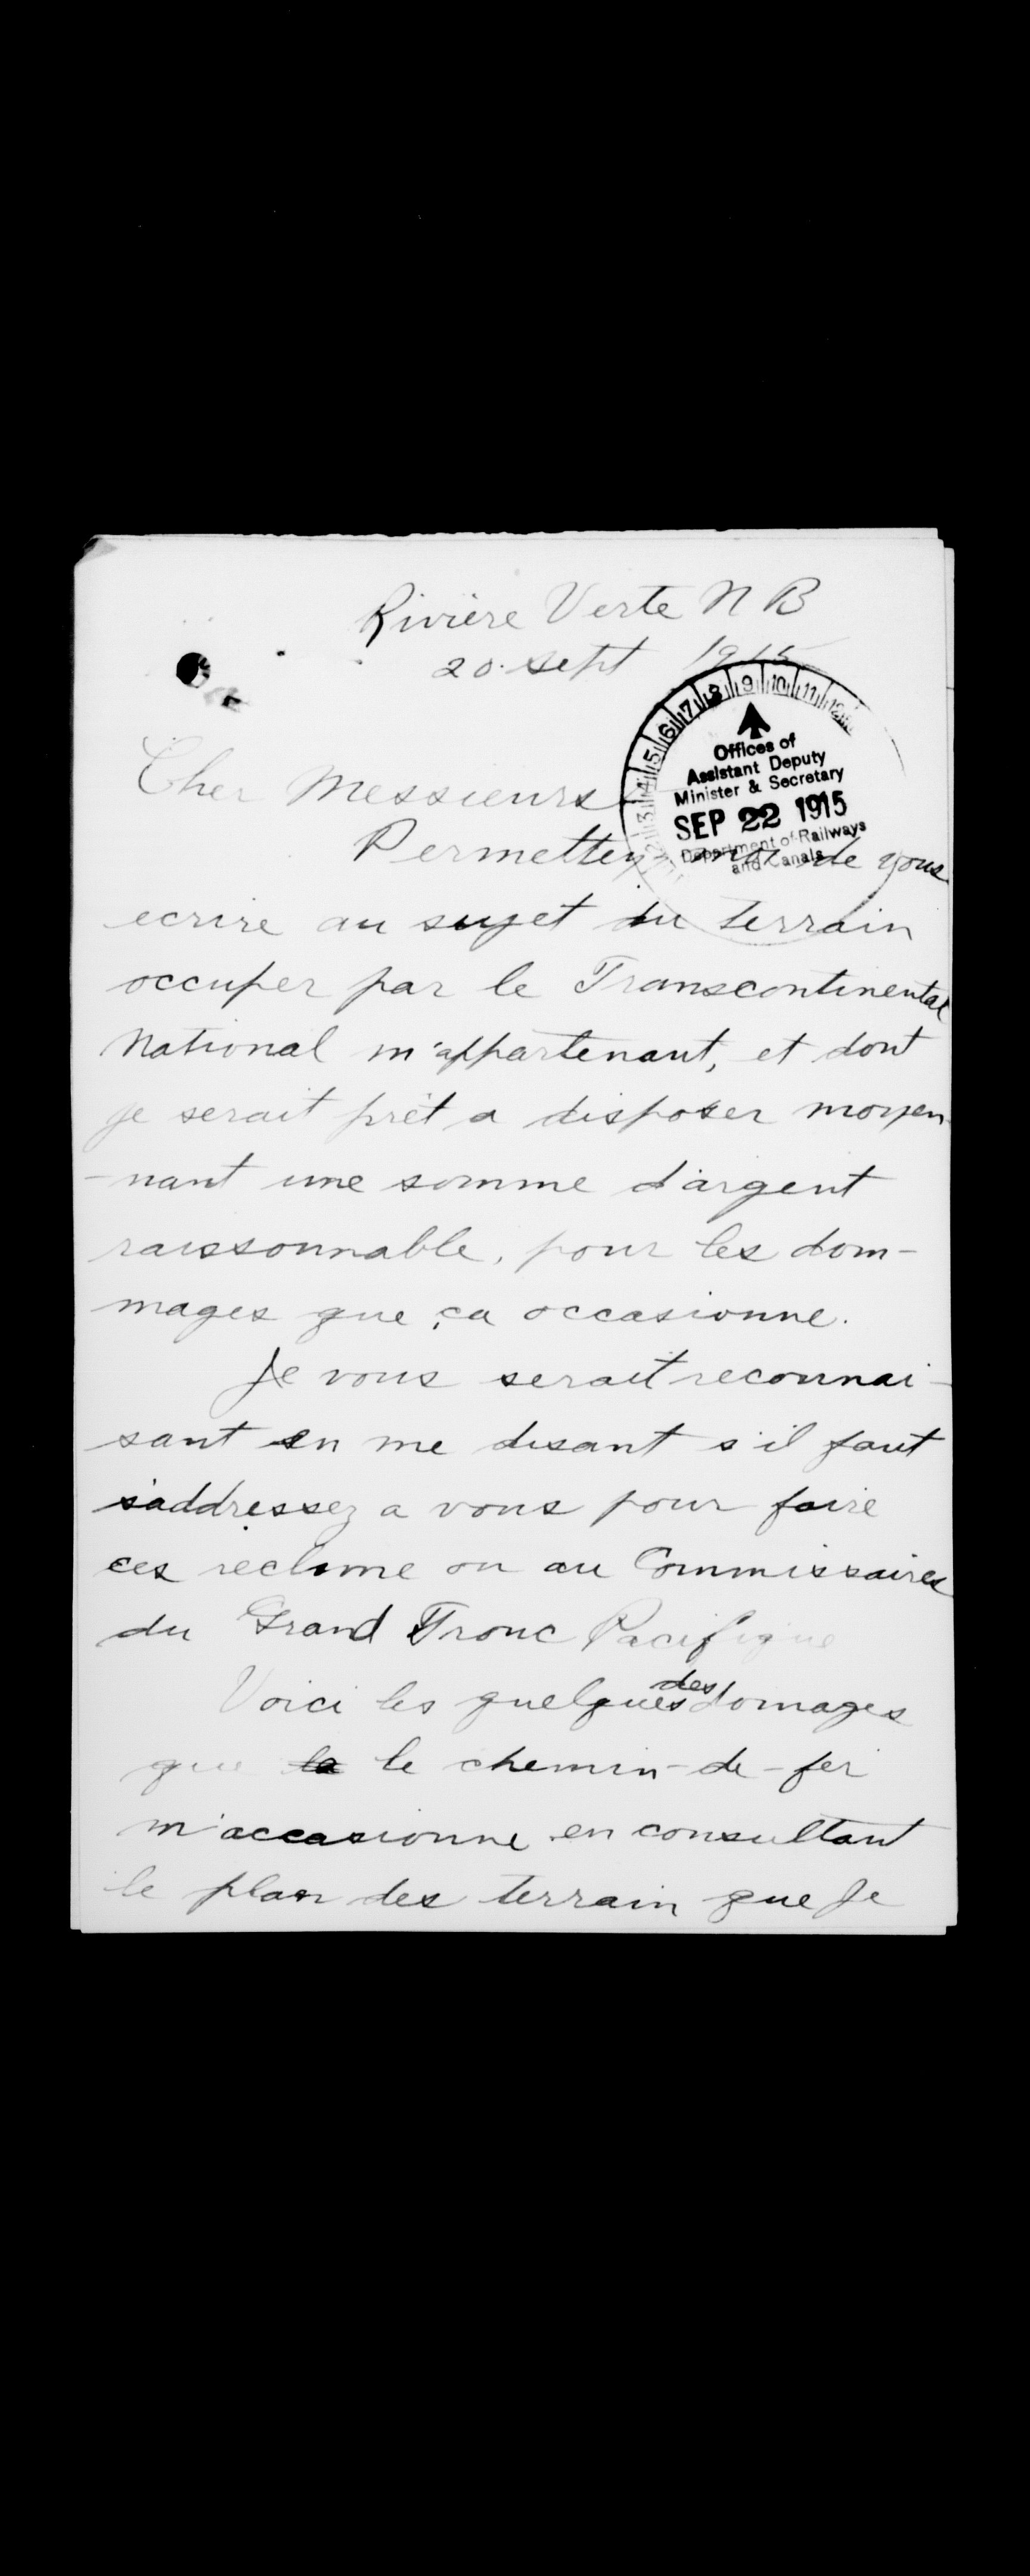 Rivière Verte N B
20 Sept 1915
5 6 7 8 9 10 11 12
Offices of
Assistant Deputy
Minister & Secretary
SEP 22 1915
Department of Railways
and Canals
Cher Messieurs
Permettez-moi de vous
ecrire au sujet du terrain
occuper par le Transcontinental
National m'appartenant, et dont
je serait prêt a disposer moyen-
-nant une somme d'argent
raissonnable, pour les dom-
mages que ça occasionne.
Je vous serait reconnai-
sant en me disant s'il faut
s'addressez a vous pour faire
ces reclame ou au Commissaires
du Grand Tronc Pacifique
Voici les quelques des domages
que la le chemin-de-fer
m'accasionne en consultant
le plan des terrain que Je